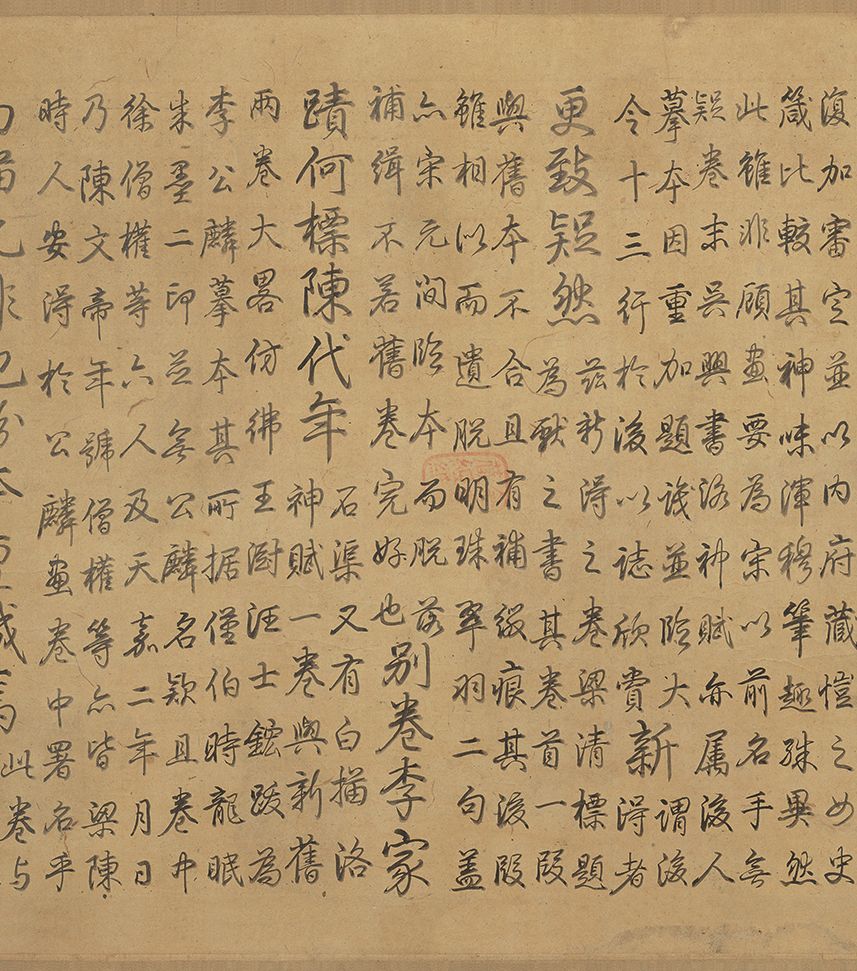 復加審定並以内府藏愷之女史
箴比較其神味渾穆筆趣殊異然
此雖非顧畫要為宋以前名手無
疑卷末吳興書洛神賦亦屬後人
摹本因重加題識並臨大
令十三行於後以誌欣賞
新
謂後
得者
更致疑然
茲新得之卷梁清標題
為獻之書其卷首一段
與舊本不合且有補綴痕其後段
雖相似而遺脫明珠翠羽二句蓋
亦宋元間臨本而脫落
補緝不若舊卷完好也
別卷李家
蹟何標陳代年
石渠又有白描洛
神賦一卷與新舊
兩卷大畧仿彿王澍汪士鋐跋為
李公麟摹本其所据僅伯時龍眠
朱墨二印並無公麟名欵且卷中
徐僧權等六人及天嘉二年月日
乃陳文帝年號僧權等亦皆梁陳
時人安得於公麟畫卷中署名乎
此卷